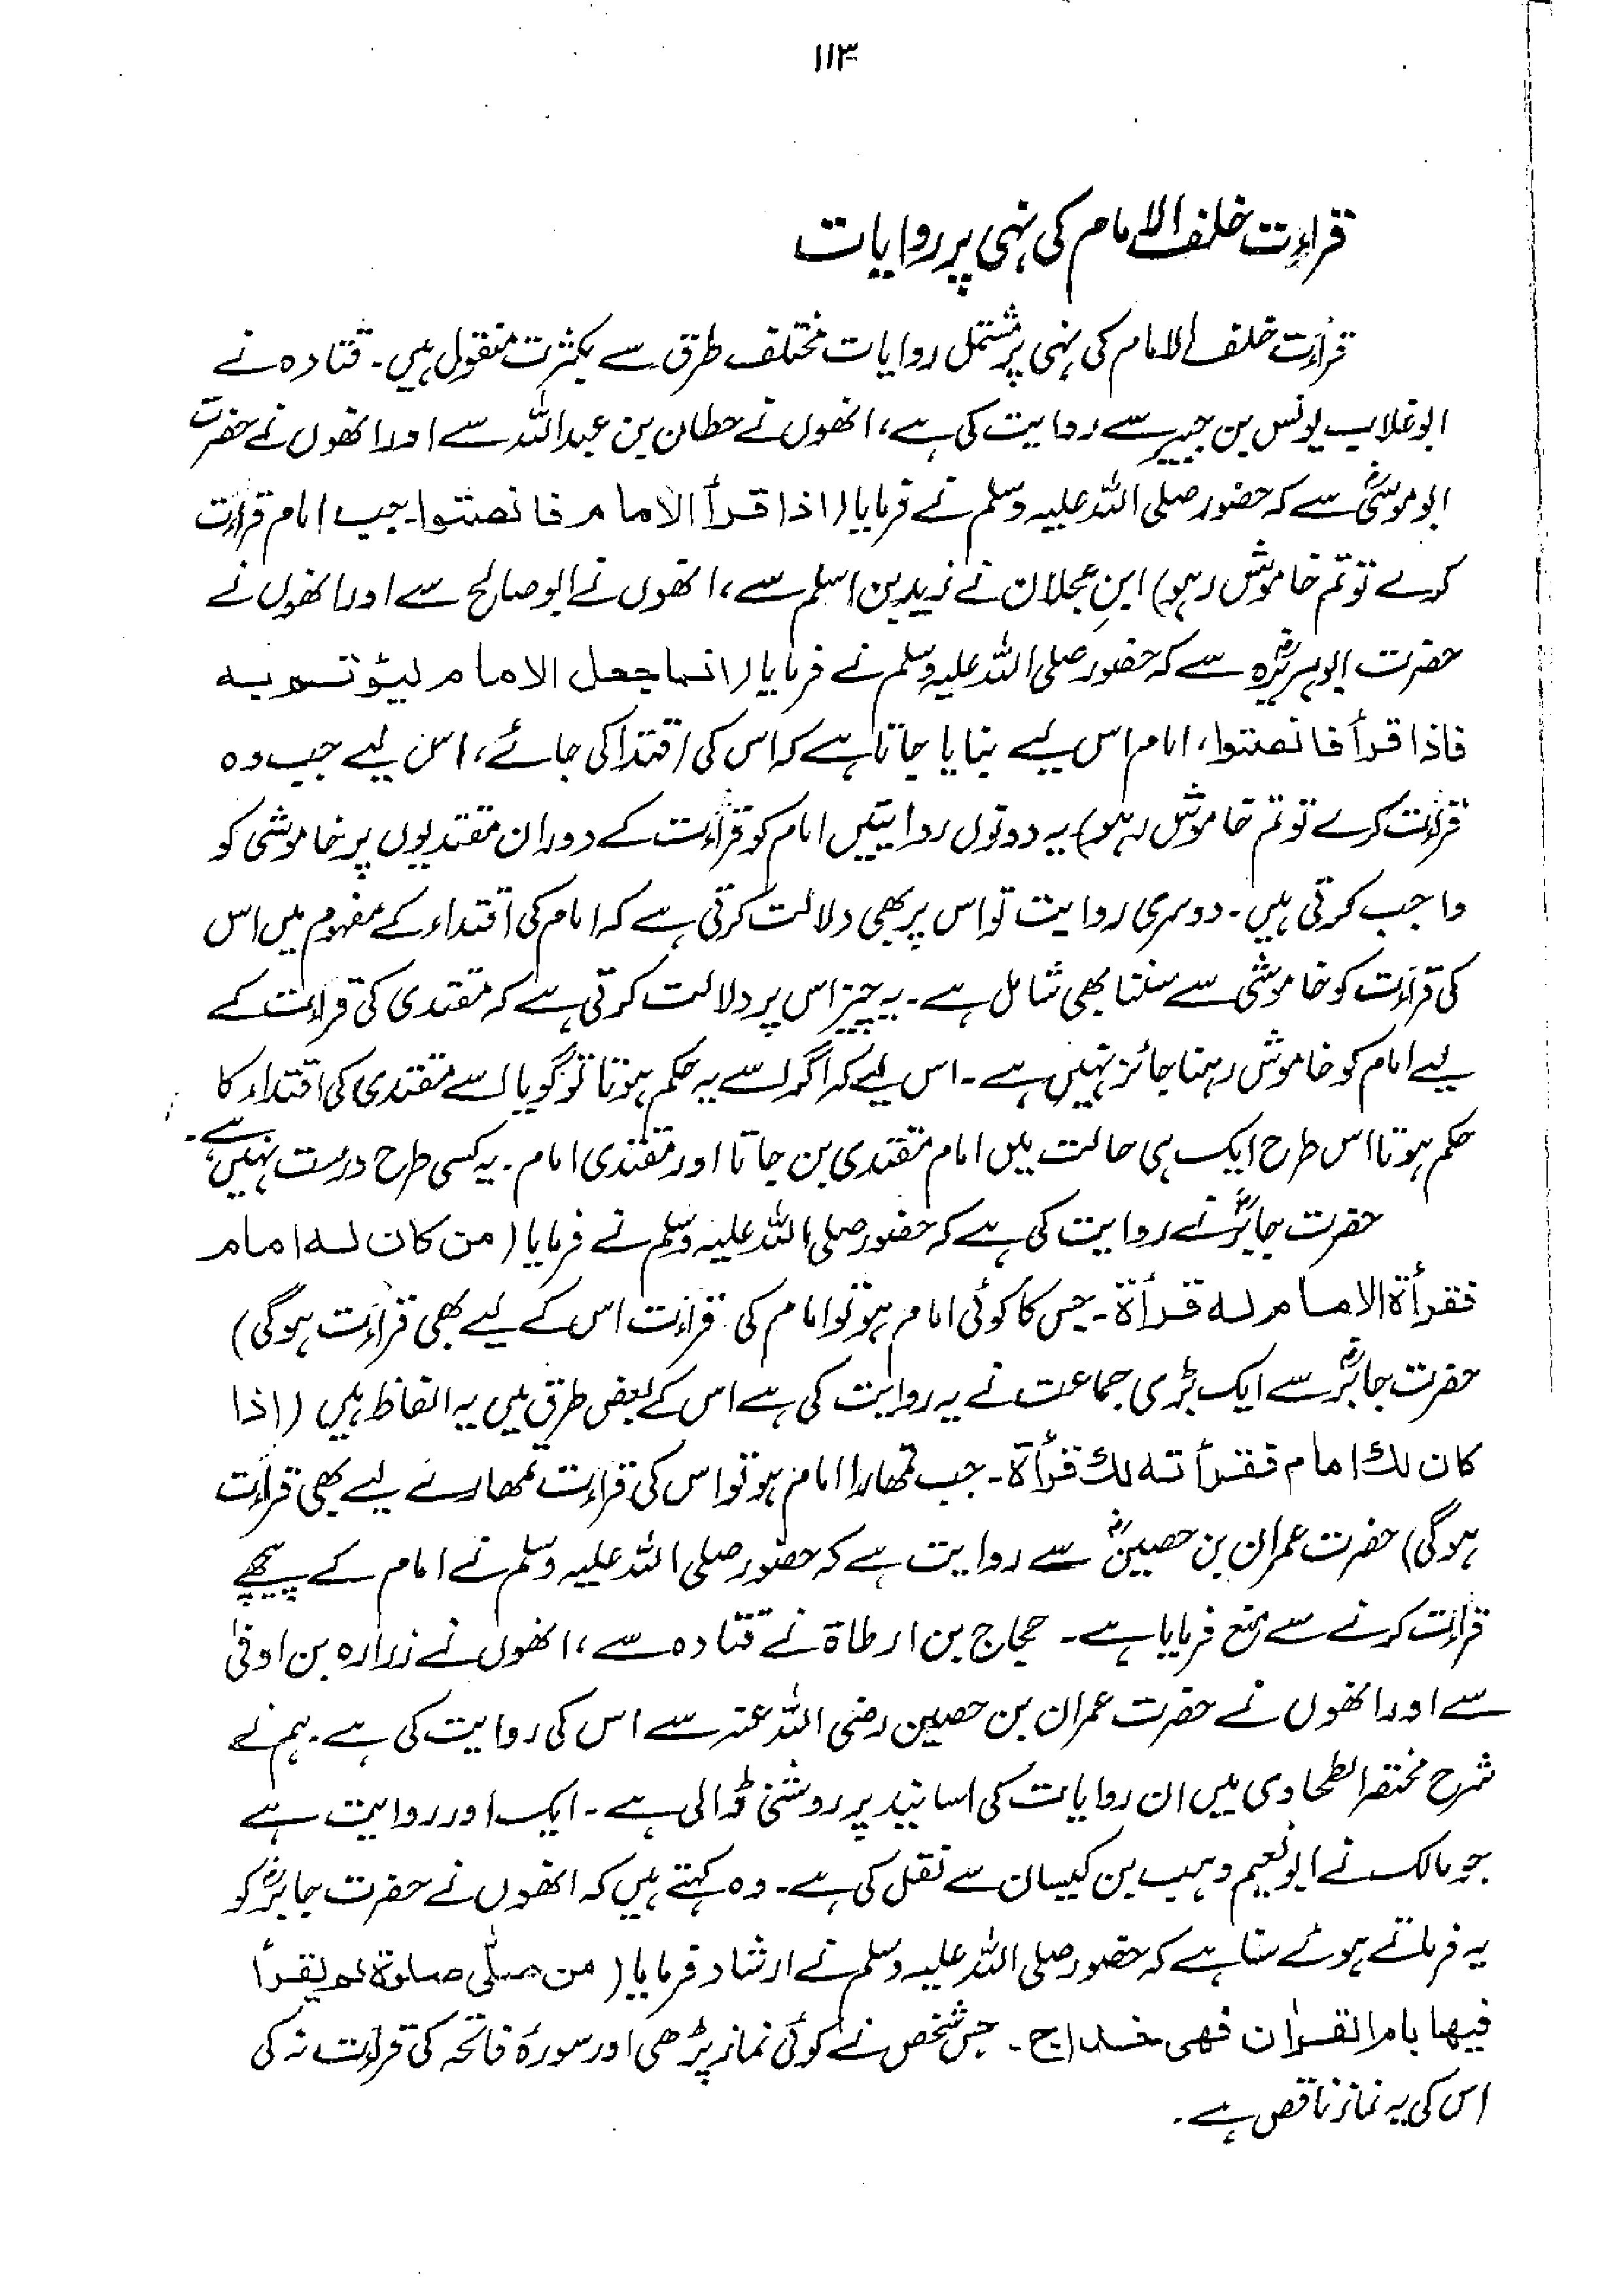 ۱۱۳
قراءت خلف الامام کی نہی پر روایات
قرأت خلف الامام کی نہی پر مشتمل روایات مختلف طرق سے بکثرت منقول ہیں۔ قتادہ نے
ابوغلاب یونس بن جبیر سے روایت کی ہے، انھوں نے حطان بن عبداللہ سے اور انھوں نے حضرت
ابوموسیٰؓ سے کہ حضور صلی اللہ علیہ وسلم نے فرمایا (اذا قرأ الامام فانصتوا۔ جب امام قرأت
کرے تو تم خاموش رہو) ابنِ عجلان نے زید بن اسلم سے، انھوں نے ابو صالح سے اور انھوں نے
حضرت ابوہریرہؓ سے کہ حضور صلی اللہ علیہ وسلم نے فرمایا (انما جعل الامام لیؤتم به
فاذا قرأ فانصتوا، امام اس لیے بنایا جاتا ہے کہ اس کی اقتدا کی جائے، اس لیے جب وہ
قرأت کرے تو تم خاموش رہو) یہ دونوں روایتیں امام کو قرأت کے دوران مقتدیوں پر خاموشی کو
واجب کرتی ہیں۔ دوسری روایت تو اس پر بھی دلالت کرتی ہے کہ امام کی اقتداء کے مفہوم میں اس
کی قرأت کو خاموشی سے سننا بھی شامل ہے۔ یہ چیز اس پر دلالت کرتی ہے کہ مقتدی کی قرأت کے
لیے امام کو خاموش رہنا جائز نہیں ہے۔ اس لیے کہ اگر اسے یہ حکم ہوتا تو گویا اسے مقتدی کی اقتداء کا
حکم ہوتا اس طرح ایک ہی حالت میں امام مقتدی بن جاتا اور مقتدی امام۔ یہ کسی طرح درست نہیں ہے۔
حضرت جابرؓ نے روایت کی ہے کہ حضور صلی اللہ علیہ وسلم نے فرمایا (من کان له امام
فقرأة الامام له قرأة۔ جس کا کوئی امام ہو تو امام کی قرأت اس کے لیے بھی قرأت ہوگی)
حضرت جابرؓ سے ایک بڑی جماعت نے یہ روایت کی ہے اس کے بعض طرق میں یہ الفاظ ہیں (اذا
کان لك امام فقرأته لك قرأة۔ جب تمھارا امام ہو تو اس کی قرأت تمھارے لیے بھی قرأت
ہوگی) حضرت عمران بن حصینؓ سے روایت ہے کہ حضور صلی اللہ علیہ وسلم نے امام کے پیچھے
قرأت کرنے سے منع فرمایا ہے۔ حجاج بن ارطاۃ نے قتادہ سے، انھوں نے زرارہ بن اوفیٰ
سے اور انھوں نے حضرت عمران بن حصین رضی اللہ عنہ سے اس کی روایت کی ہے۔ ہم نے
شرح مختصر الطحاوی میں ان روایات کی اسانید پر روشنی ڈالی ہے۔ ایک اور روایت ہے
جو مالک نے ابونعیم وہب بن کیسان سے نقل کی ہے۔ وہ کہتے ہیں کہ انھوں نے حضرت جابرؓ کو
یہ فرماتے ہوئے سنا ہے کہ حضور صلی اللہ علیہ وسلم نے ارشاد فرمایا (من صلّی صلوة لم یقرأ
فیها بام القراٰن فهی خداج۔ جس شخص نے کوئی نماز پڑھی اور سورۂ فاتحہ کی قرأت نہ کی
اس کی یہ نماز ناقص ہے۔